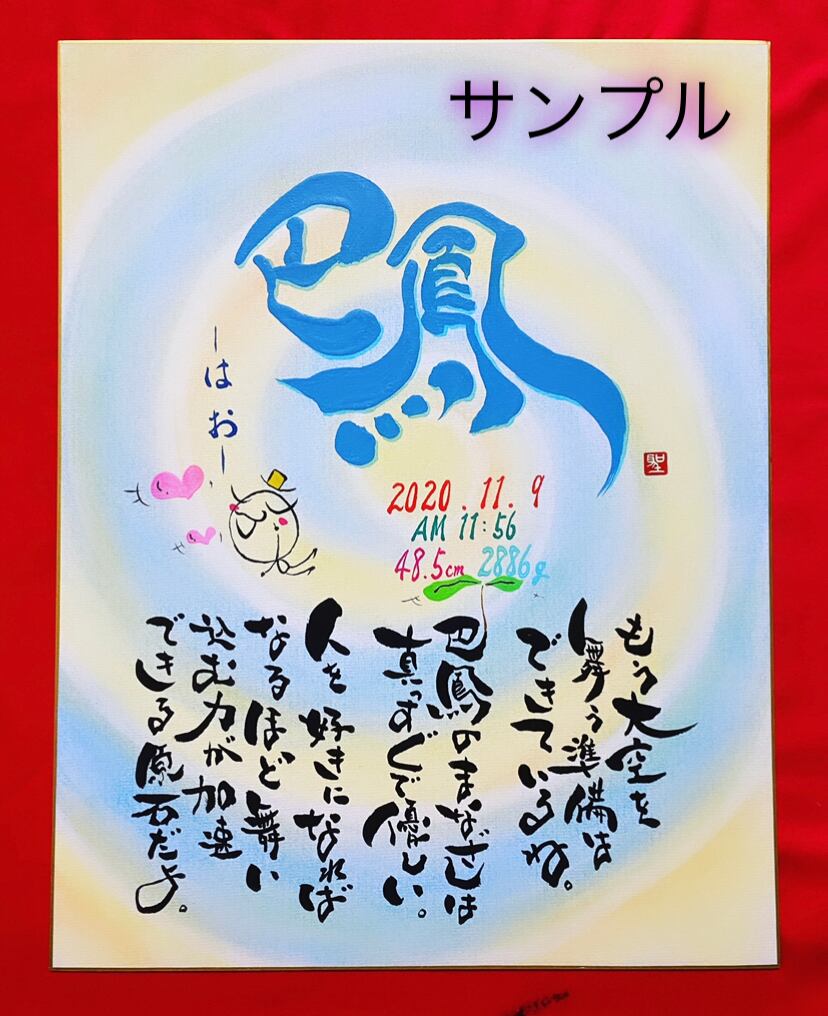 サンプル
巴鳳
-はお-
聖
2020.11.9
AM 11:56
48.5cm 2886g
もう大空を
舞う準備は
できているね。
巴鳳のまなざしは
真っすぐで優しい。
人を好きになれば
なるほど舞い
込む力が加速
できる原石だよ。